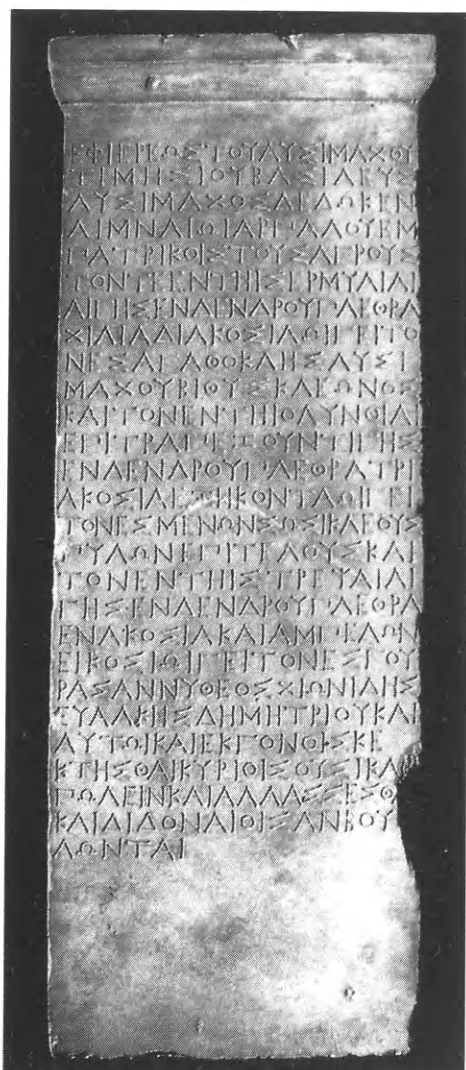 ΕΦΙΕΡΕΩΣΤΟΥΛΥΣΙΜΑΧΟΥ
ΤΙΜΗΣΙΟΥΒΑΣΙΛΕΥΣ
ΛΥΣΙΜΑΧΟΣΔΕΔΩΚΕΝ
ΛΙΜΝΑΙΩΙΑΡΠΑΛΟΥΕΜ
ΠΑΤΡΙΚΟΙΣΤΟΥΣΑΓΡΟΥΣ
ΤΟΝΤΕΕΝΤΗΙΣΕΡΜΥΛΙΑΙ
ΑΙΓΗΣΕΝΔΕΝΔΡΟΥΠΛΕΘΡΑ
ΧΙΛΙΑΔΙΑΚΟΣΙΑΩΙΓΕΙΤΟ
ΝΕΣΑΓΑΘΟΚΛΗΣΛΥΣΙ
ΜΑΧΟΥΒΙΘΥΣΚΛΕΩΝΟΣ
ΚΑΙΤΟΝΕΝΤΗΙΟΛΥΝΘΙΑΙ
ΕΠΙΤΡΑΠΕΖΟΥΝΤΙΓΗΣ
ΕΝΔΕΝΔΡΟΥΠΛΕΘΡΑΤΡΙ
ΑΚΟΣΙΑΕΞΗΚΟΝΤΑΩΙΓΕΙ
ΤΟΝΕΣΜΕΝΩΝΣΩΣΙΚΛΕΟΥΣ
ΠΥΛΩΝΕΠΙΤΕΛΟΥΣΚΑΙ
ΤΟΝΕΝΤΗΙΣΤΡΕΨΑΙΑΙ
ΓΗΣΕΝΔΕΝΔΡΟΥΠΛΕΘΡΑ
ΕΝΑΚΟΣΙΑΚΑΙΑΜΠΕΛΩΝ
ΕΙΚΟΣΙΩΙΓΕΙΤΟΝΕΣΓΟΥ
ΡΑΣΑΝΝΥΘΕΟΣΧΙΩΝΙΔΗΣ
ΕΥΑΛΚΗΣΔΗΜΗΤΡΙΟΥΚΑΙ
ΑΥΤΩΙΚΑΙΕΚΓΟΝΟΙΣΚΕ
ΚΤΗΣΘΑΙΚΥΡΙΟΙΣΟΥΣΙΚΑ
ΠΩΛΕΙΝΚΑΙΑΛΛΑΣΣΕΣΘΑ
ΚΑΙΔΙΔΟΝΑΙΟΙΣΑΝΒΟΥ
ΛΩΝΤΑΙ